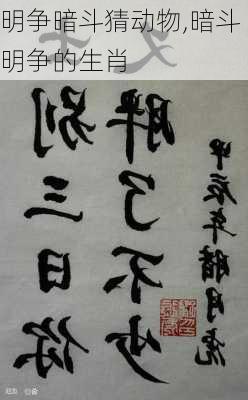 明争暗斗猜动物,暗斗
明争的生肖
别三日你
胖了不少
甲辰年腊月虎